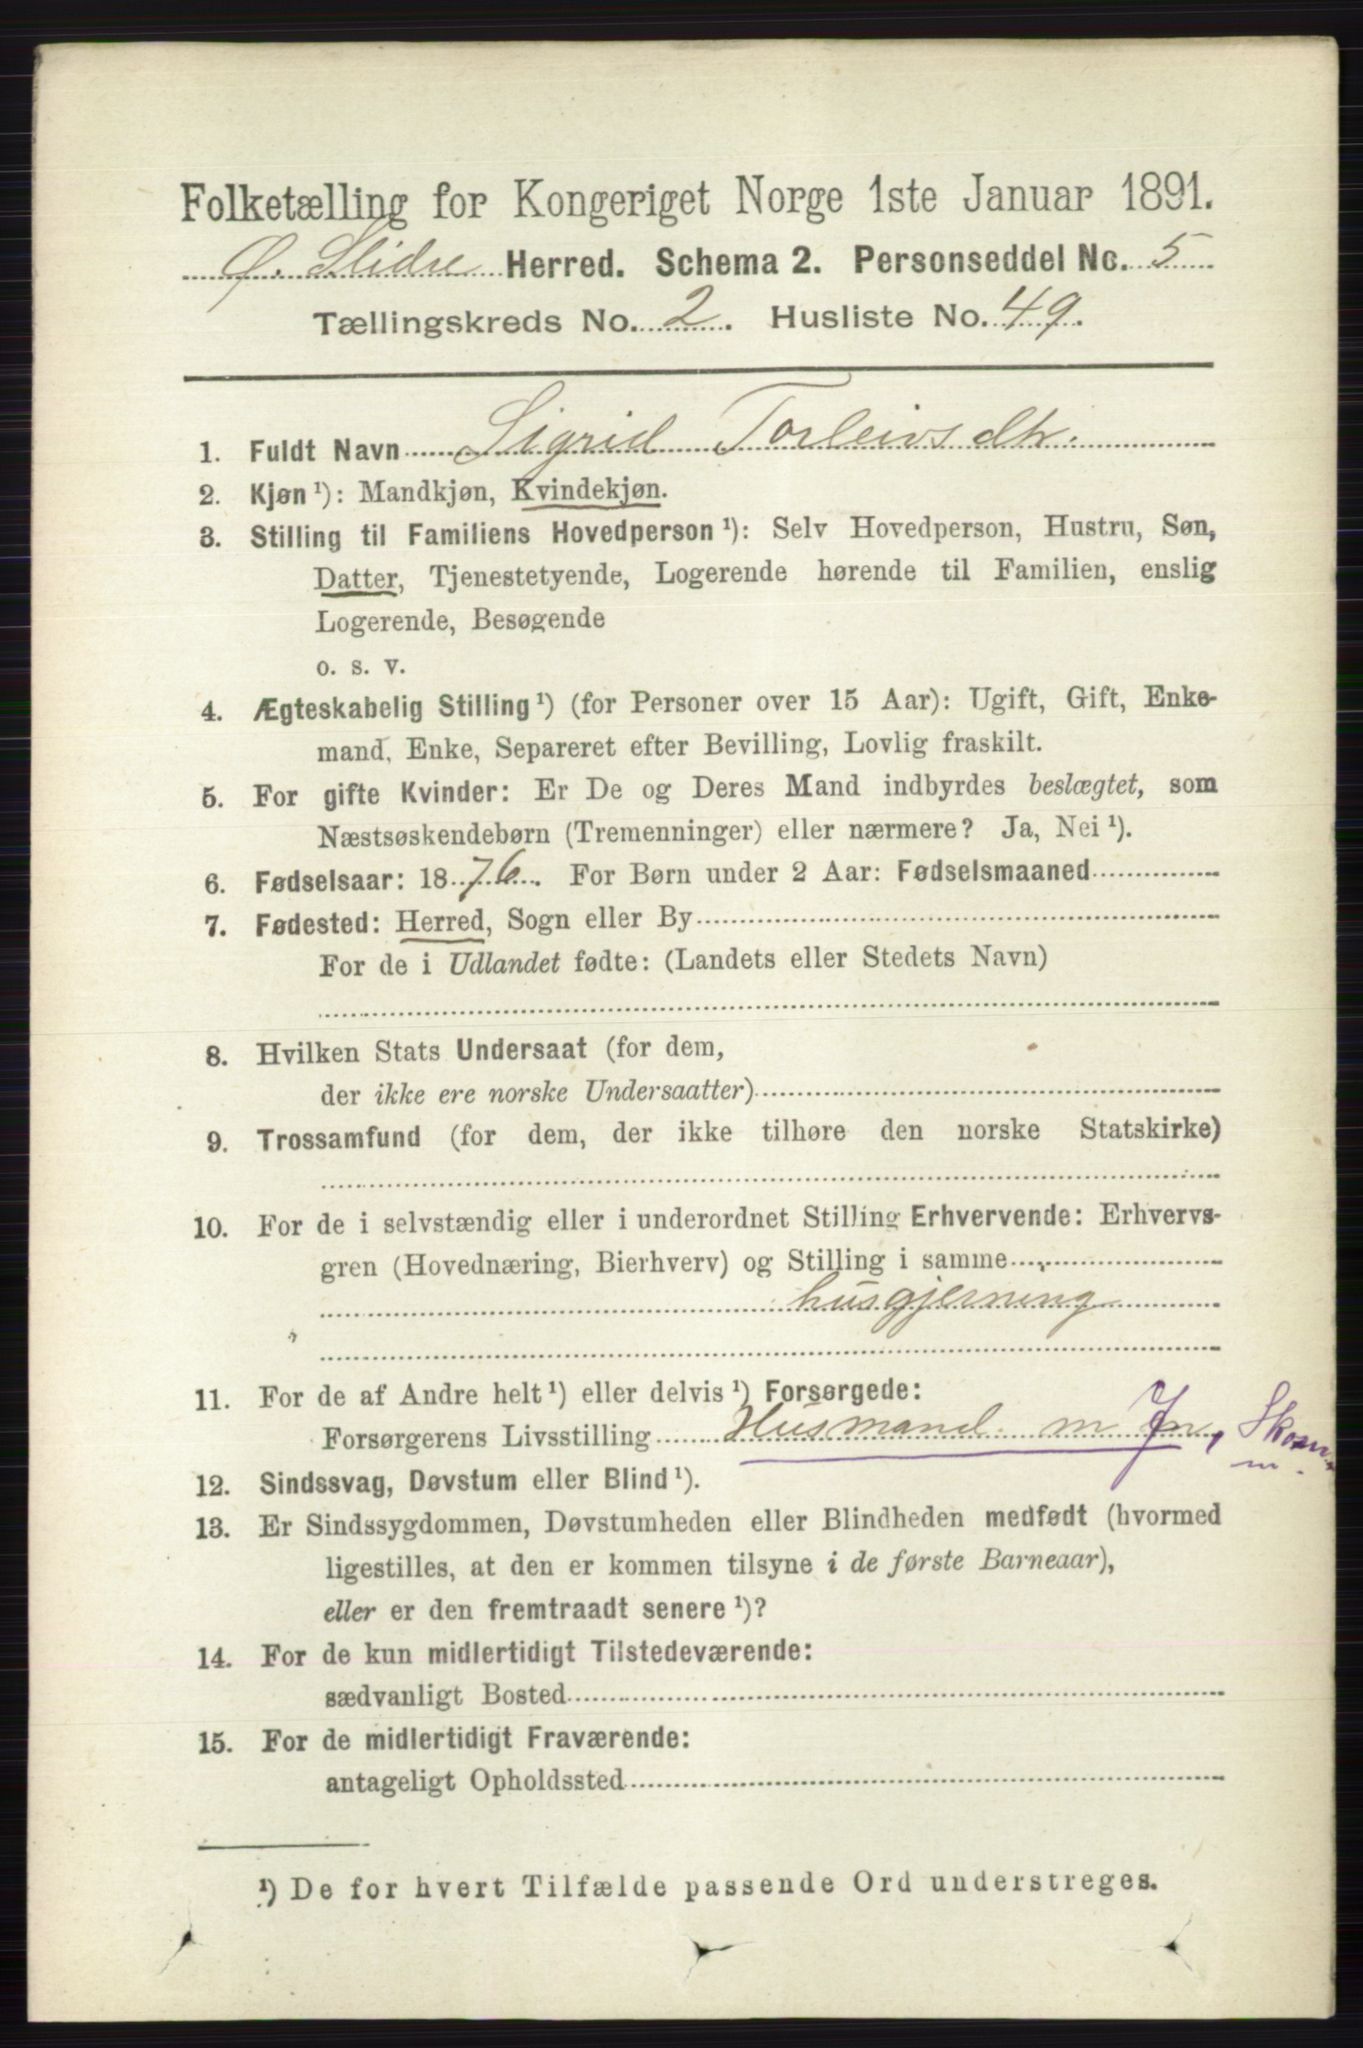 Folketælling for Kongeriget Norge 1ste Januar 1891.
Ø. Slidre Herred. Schema 2. Personseddel No. 5
Tællingskreds No. 2. Husliste No. 49.
1. Fuldt Navn Sigrid Torleivsdtr.
2. Kjøn ¹): Mandkjøn, Kvindekjøn.
3. Stilling til Familiens Hovedperson ¹): Selv Hovedperson, Hustru, Søn,
Datter, Tjenestetyende, Logerende hørende til Familien, enslig
Logerende, Besøgende
o. s. v.
4. Ægteskabelig Stilling ¹) (for Personer over 15 Aar): Ugift, Gift, Enke-
mand, Enke, Separeret efter Bevilling, Lovlig fraskilt.
5. For gifte Kvinder: Er De og Deres Mand indbyrdes beslægtet, som
Næstsøskendebørn (Tremenninger) eller nærmere? Ja, Nei ¹).
6. Fødselsaar: 1876. For Børn under 2 Aar: Fødselsmaaned
7. Fødested: Herred, Sogn eller By
For de i Udlandet fødte: (Landets eller Stedets Navn)
8. Hvilken Stats Undersaat (for dem,
der ikke ere norske Undersaatter)
9. Trossamfund (for dem, der ikke tilhøre den norske Statskirke)
10. For de i selvstændig eller i underordnet Stilling Erhvervende: Erhvervs-
gren (Hovednæring, Bierhverv) og Stilling i samme
husgjerning
11. For de af Andre helt ¹) eller delvis ¹) Forsørgede:
Forsørgerens Livsstilling Husmand m Jn, Skom
m.
12. Sindssvag, Døvstum eller Blind ¹).
13. Er Sindssygdommen, Døvstumheden eller Blindheden medfødt (hvormed
ligestilles, at den er kommen tilsyne i de første Barneaar),
eller er den fremtraadt senere ¹)?
14. For de kun midlertidigt Tilstedeværende:
sædvanligt Bosted
15. For de midlertidigt Fraværende:
antageligt Opholdssted
¹) De for hvert Tilfælde passende Ord understreges.